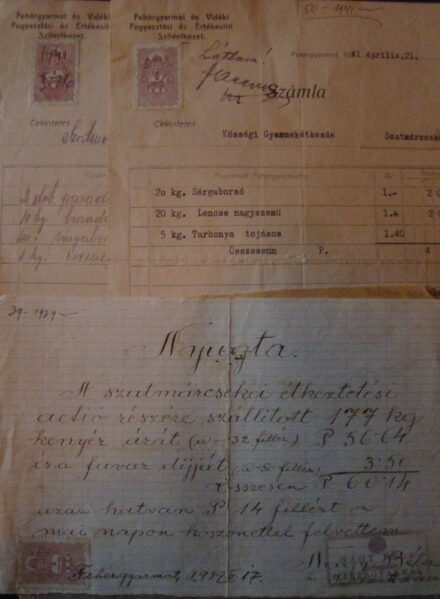 Fehérgyarmat és Vidéki
Fogyasztási és Értékesitő
Szövetkezet.
Cekintetes
Szatmá
10 kg.
Fehérgyarmat és Vidéki
Fogyasztási és Értékesitő
Szövetkezet.
50-1941
Fehérgyarmat, 19 41 április.21.
Láttam!
Számla
Cekintetes
Községi Gyermekétkezde
Szatmárcseke
20 kg. Sárgaborsó 1.-
20 kg. Lencse nagyszemü 1.-
5 kg. Tarhonya tojásos 1.40
Összesenn P.
29-1939
Nyugta.
A szatmárcsekei étkeztetési
actió részére szállitott 177 kg
kenyér árát (a -32 fillér) P 56·64
és a fuvar díjját (a -50 fillér) 3·50
Összesen P 60·14
azaz hatvan P 14 fillért a
mai napon köszönettel felvettem
Fehérgyarmat, 1939